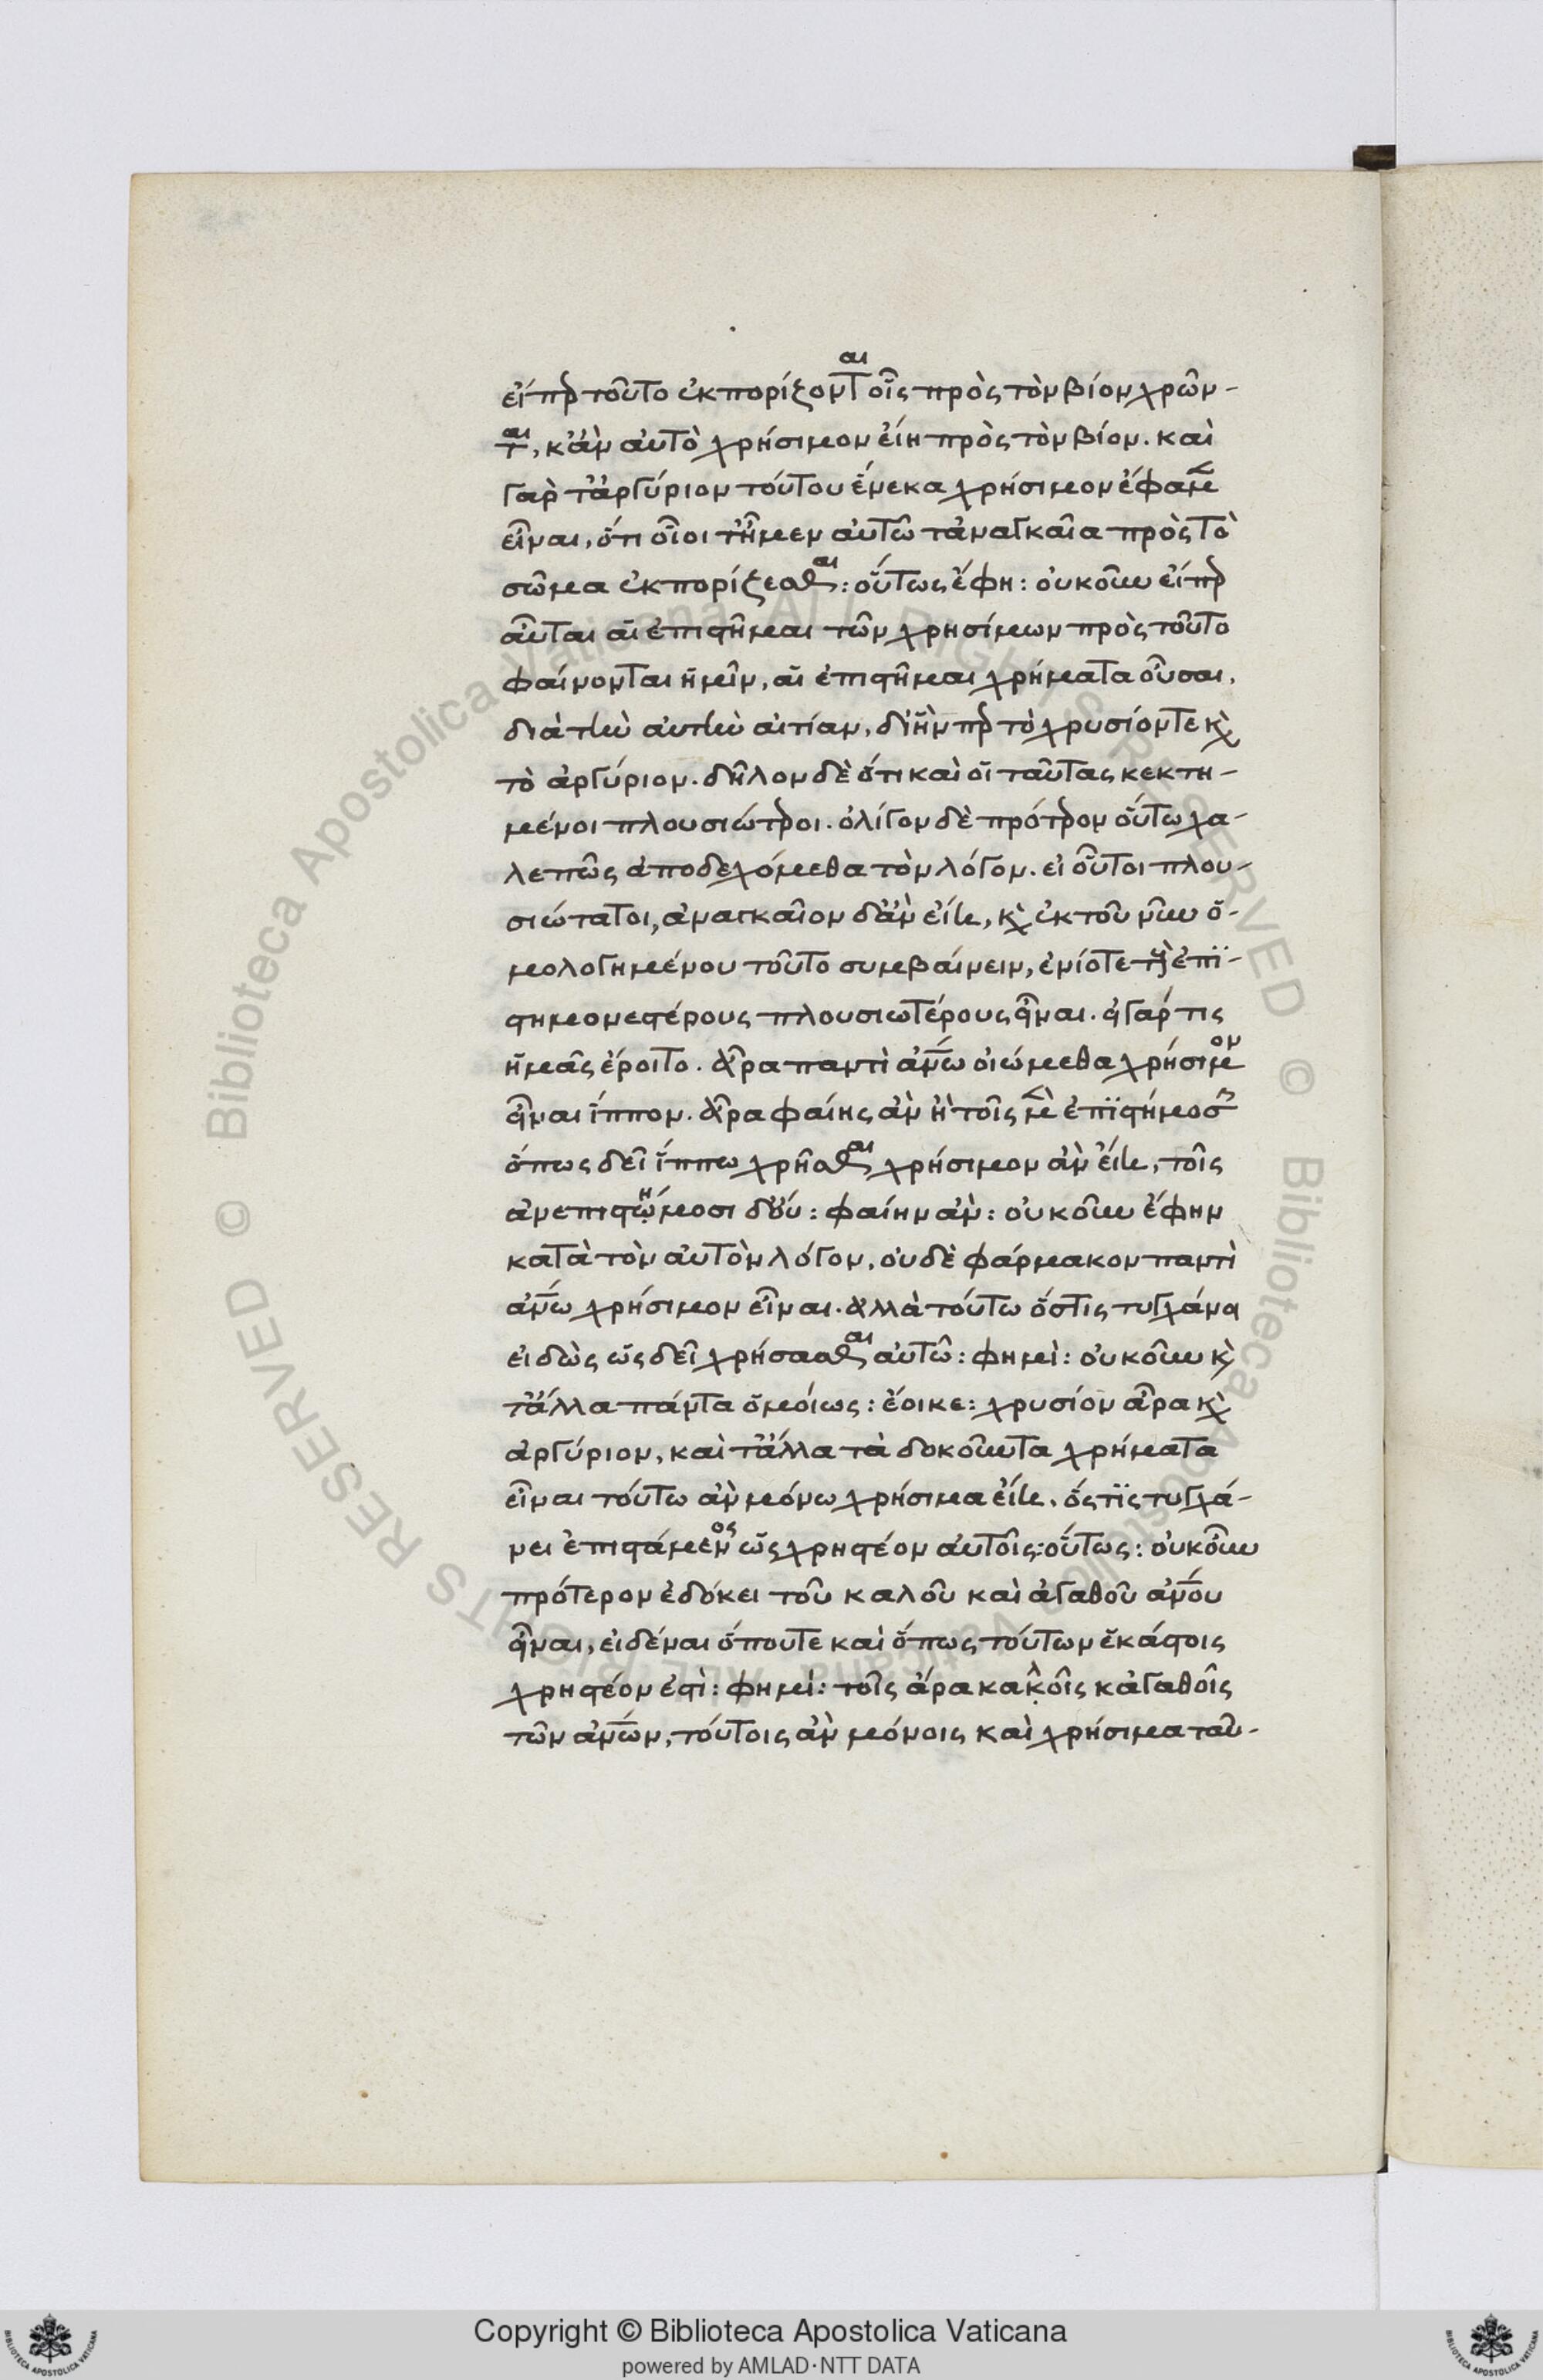 εἴπερ τοῦτο ἐκπορίζονται οἷς πρὸς τὸν βίον χρῶν-
ται, κἂν αὐτὸ χρήσιμον εἴη πρὸς τὸν βίον. καὶ
γὰρ τἀργύριον τούτου ἕνεκα χρήσιμον ἔφαμεν
εἶναι, ὅτι οἷοι τῆμεν αὐτῶ τἀναγκαῖα πρὸς τὸ
σῶμα ἐκπορίζεσθαι: οὕτως ἔφη: οὐκοῦν εἴπερ
αὗται αἱ ἐπιστῆμαι τῶν χρησίμων πρὸς τοῦτο
φαίνονται ἡμῖν, αἱ ἐπιστῆμαι χρήματα οὖσαι,
διὰ τὴν αὐτὴν αἰτίαν, δι ἥνπερ τὸ χρυσίον τε καὶ
τὸ ἀργύριον. δῆλον δὲ ὅτι καὶ οἱ ταύτας κεκτη-
μένοι πλουσιώτεροι. ὀλίγον δὲ πρότερον οὕτω χα-
λεπῶς ἀποδεχόμεθα τὸν λόγον. εἰ οὗτοι πλου-
σιώτατοι, ἀναγκαῖον δ ἂν εἴη, καὶ ἐκ τοῦ νῦν ὁ-
μολογημένου τοῦτο συμβαίνειν, ἐνίοτε τοὺς ἐπι-
στημονεστέρους πλουσιωτέρους εἶναι. εἰ γάρ τις
ἡμᾶς ἔροιτο. ἆρα παντὶ ἀνθρώπω οἰώμεθα χρήσιμον
εἶναι ἵππον. ἆρα φαίης ἂν ἢ τοῖς μὲν ἐπιστήμοσιν
ὅπως δεῖ ἵππω χρῆσθαι χρήσιμον ἂν εἴη, τοῖς
ἀνεπιστήμοσι δ οὔ: φαίην ἄν: οὐκοῦν ἔφην
κατὰ τὸν αὐτὸν λόγον, οὐδὲ φάρμακον παντὶ
ἀνθρώπω χρήσιμον εἶναι. ἀλλὰ τούτω ὅστις τυγχάνει
εἰδὼς ὡς δεῖ χρήσασθαι αὐτῶ: φημὶ: οὐκοῦν καὶ
τἄλλα πάντα ὁμοίως: ἔοικε: χρυσίον ἆρα καὶ
ἀργύριον, καὶ τἄλλα τὰ δοκοῦντα χρήματα
εἶναι τούτω ἂν μόνω χρήσιμα εἴη, ὅςτις τυγχά-
νει ἐπιστάμενος ὡς χρηστέον αὐτοῖς: οὕτως: οὐκοῦν
πρότερον ἐδόκει τοῦ καλοῦ καὶ ἀγαθοῦ ἀνθρώπου
εἶναι, εἰδέναι ὅπου τε καὶ ὅπως τούτων ἑκάστοις
χρηστέον ἐστὶ: φημί: τοῖς ἄρα κακοῖς κἀγαθοῖς
τῶν ἀνθρώπων, τούτοις ἂν μόνοις καὶ χρήσιμα ταῦ-
Copyright © Biblioteca Apostolica Vaticana
powered by AMLAD·NTT DATA